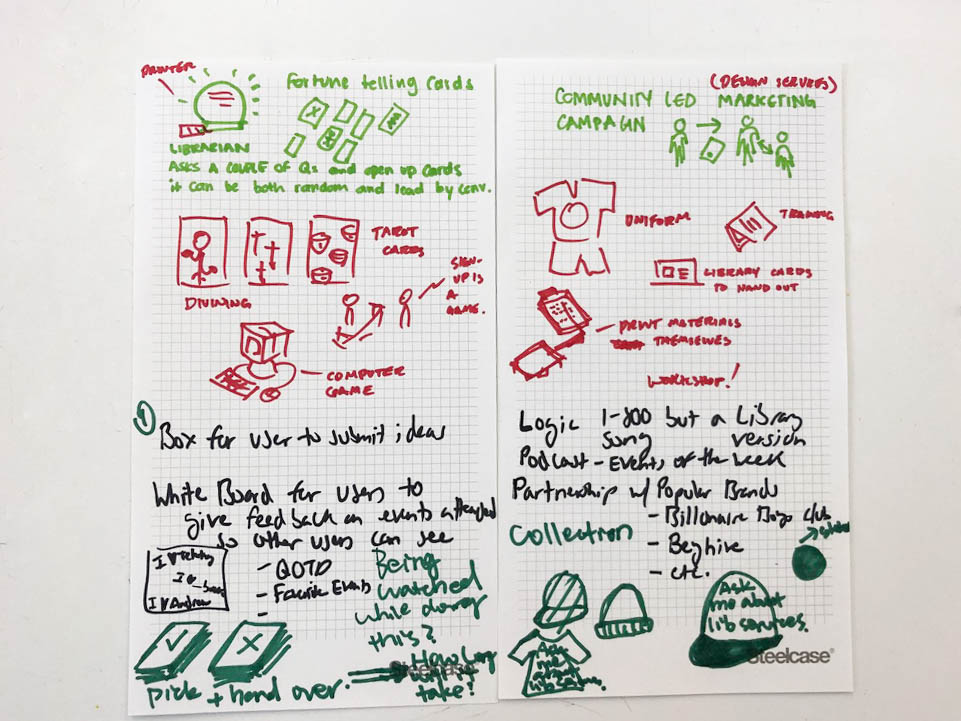 PRINTER
Fortune telling cards
LIBRARIAN
ASKS A COUPLE OF Qs and open up cards
it can be both random and lead by conv.
TAROT
CARDS
DIVINING
SIGN-
UP IS
A
GAME.
COMPUTER
GAME
1
Box for user to submit ideas
White Board for users to
give feedback on events attended
so other users can see
- QOTD
- Favorite Events
-
I ♥
I ♥
I ♥ Andrew
Being
watched
while doing
this?
How long
take?
pick + hand over.
Steelcase
(DESIGN SERVICES)
COMMUNITY LED MARKETING
CAMPAIGN
UNIFORM
TRAINING
LIBRARY CARDS
TO HAND OUT
PRINT MATERIALS
THEMSELVES
WORKSHOP!
Logic 1-800 but a Library
song version
Podcast - Events of the week
Partnership w/ Popular Brands
- Billionaire Boys Club
- Beyhive
- etc.
Collection
Ask
me about
lib services.
Ask
me
about
Steelcase®